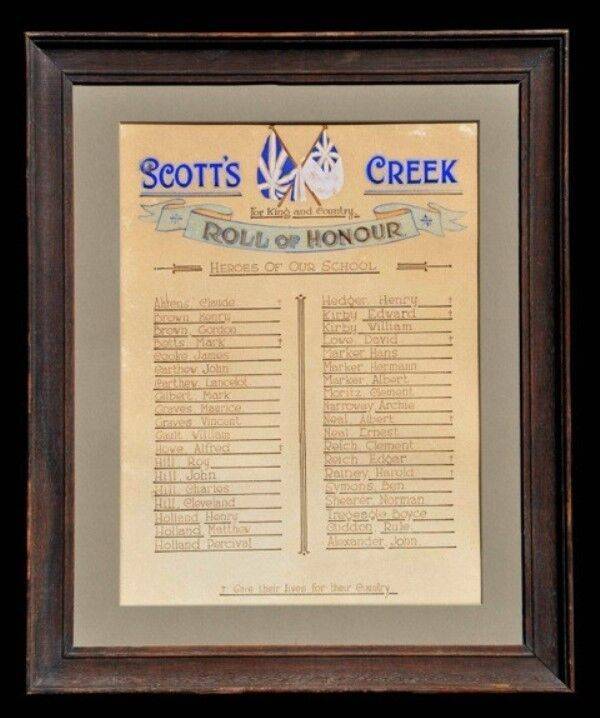 SCOTT'S CREEK
For King and Country
ROLL OF HONOUR
HEROES OF OUR SCHOOL
Ahrens Claude †
Brown Henry
Brown Gordon
Botts Mark †
Cooke James
Carthew John
Carthew Lancelot
Gilbert Mark
Graves Maurice
Graves Vincent
Gault William
Howe Alfred †
Hill Roy
Hill John
Hill Charles
Hill Cleveland
Holland Henry
Holland Matthew
Holland Percival
Hedger Henry †
Kirby Edward †
Kirby William
Lowe David †
Marker Hans
Marker Hermann
Marker Albert
Moritz Clement
Narroway Archie
Neal Albert †
Neal Ernest
Reich Clement
Reich Edgar †
Rainey Harold †
Symons Ben
Shearer Norman
Tregeagle Boyce
Cuddon Rule
Alexander John
† Gave their lives for their Country